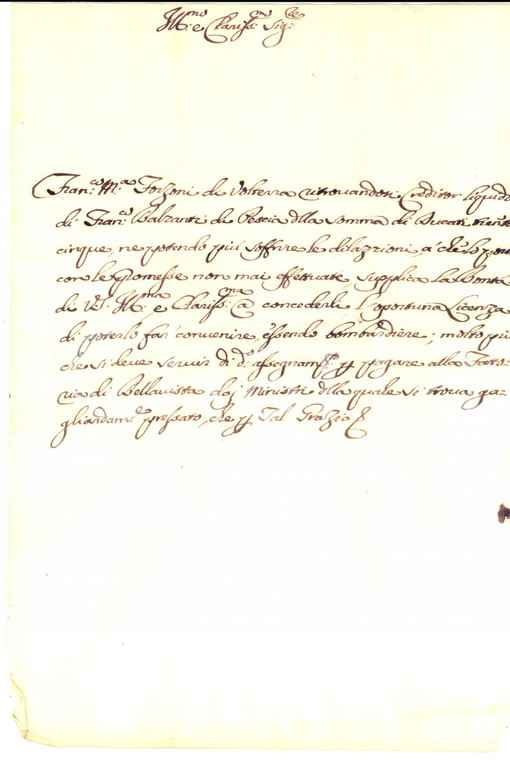 Ill:mo e Clariss:mo Sig:re
Fran:co M:a Forzoni di Volterra ritrovandosi Creditor liquido
di Fran:co Balzanti di Pescia della somma di Ducati
cinque, ne potendo più soffrire le dilazzioni, a che lo
con le Promesse non mai effettuate supplica la Bontà
di V.S. Ill:ma e Clariss:ma @ concederli l'oportuna licenza
di poterlo far convenire, essendo bombardiere; molto più
che si deve servir di d:o assegnam:to p pagare alla Fatto-
ria di Bellavista daj Ministri della quale si trova ga-
gliardam:e pressato, che p Tal Grazia